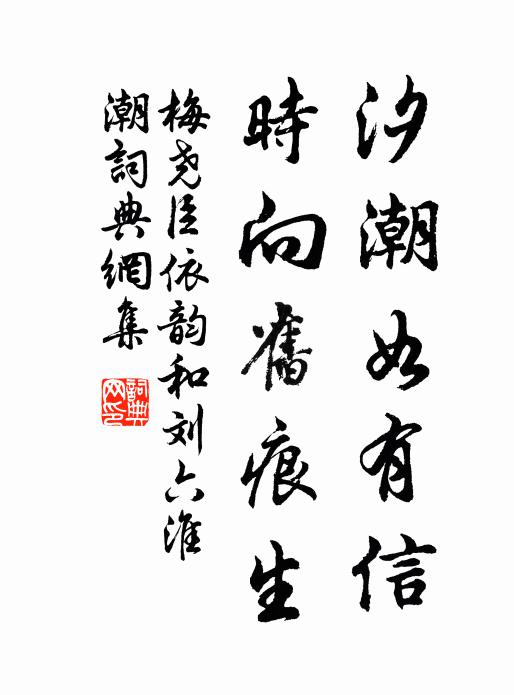 汐潮如有信
時向舊痕生
梅尧臣依韵和刘六淮
潮詞典網集
詞典网印